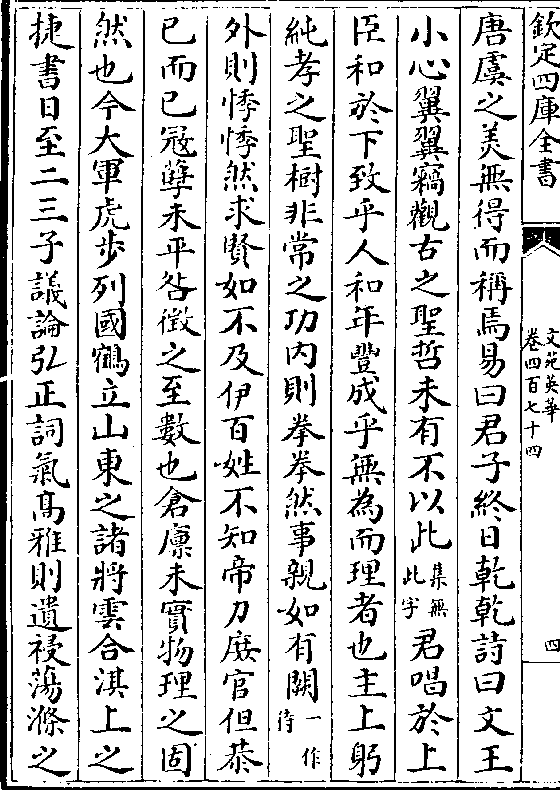 欽定四庫全書
文苑英華
卷四百七十四
四
唐虞之美無得而稱焉易曰君子終日乾乾詩曰文王
小心翼翼竊觀古之聖哲未有不以此集無此字君唱於上
臣和於下致乎人和年豐成乎無為而理者也主上躬
純孝之聖樹非常之功內則拳拳然事親如有闕一作待
外則悸悸然求賢如不及伊百姓不知帝力庶官但恭
已而已冦孽未平咎徵之至數也倉廪未實物理之固
然也今大軍虎步列國鶴立山東之諸將雲合淇上之
捷書日至二三子議論弘正詞氣髙雅則遺祲蕩滌之